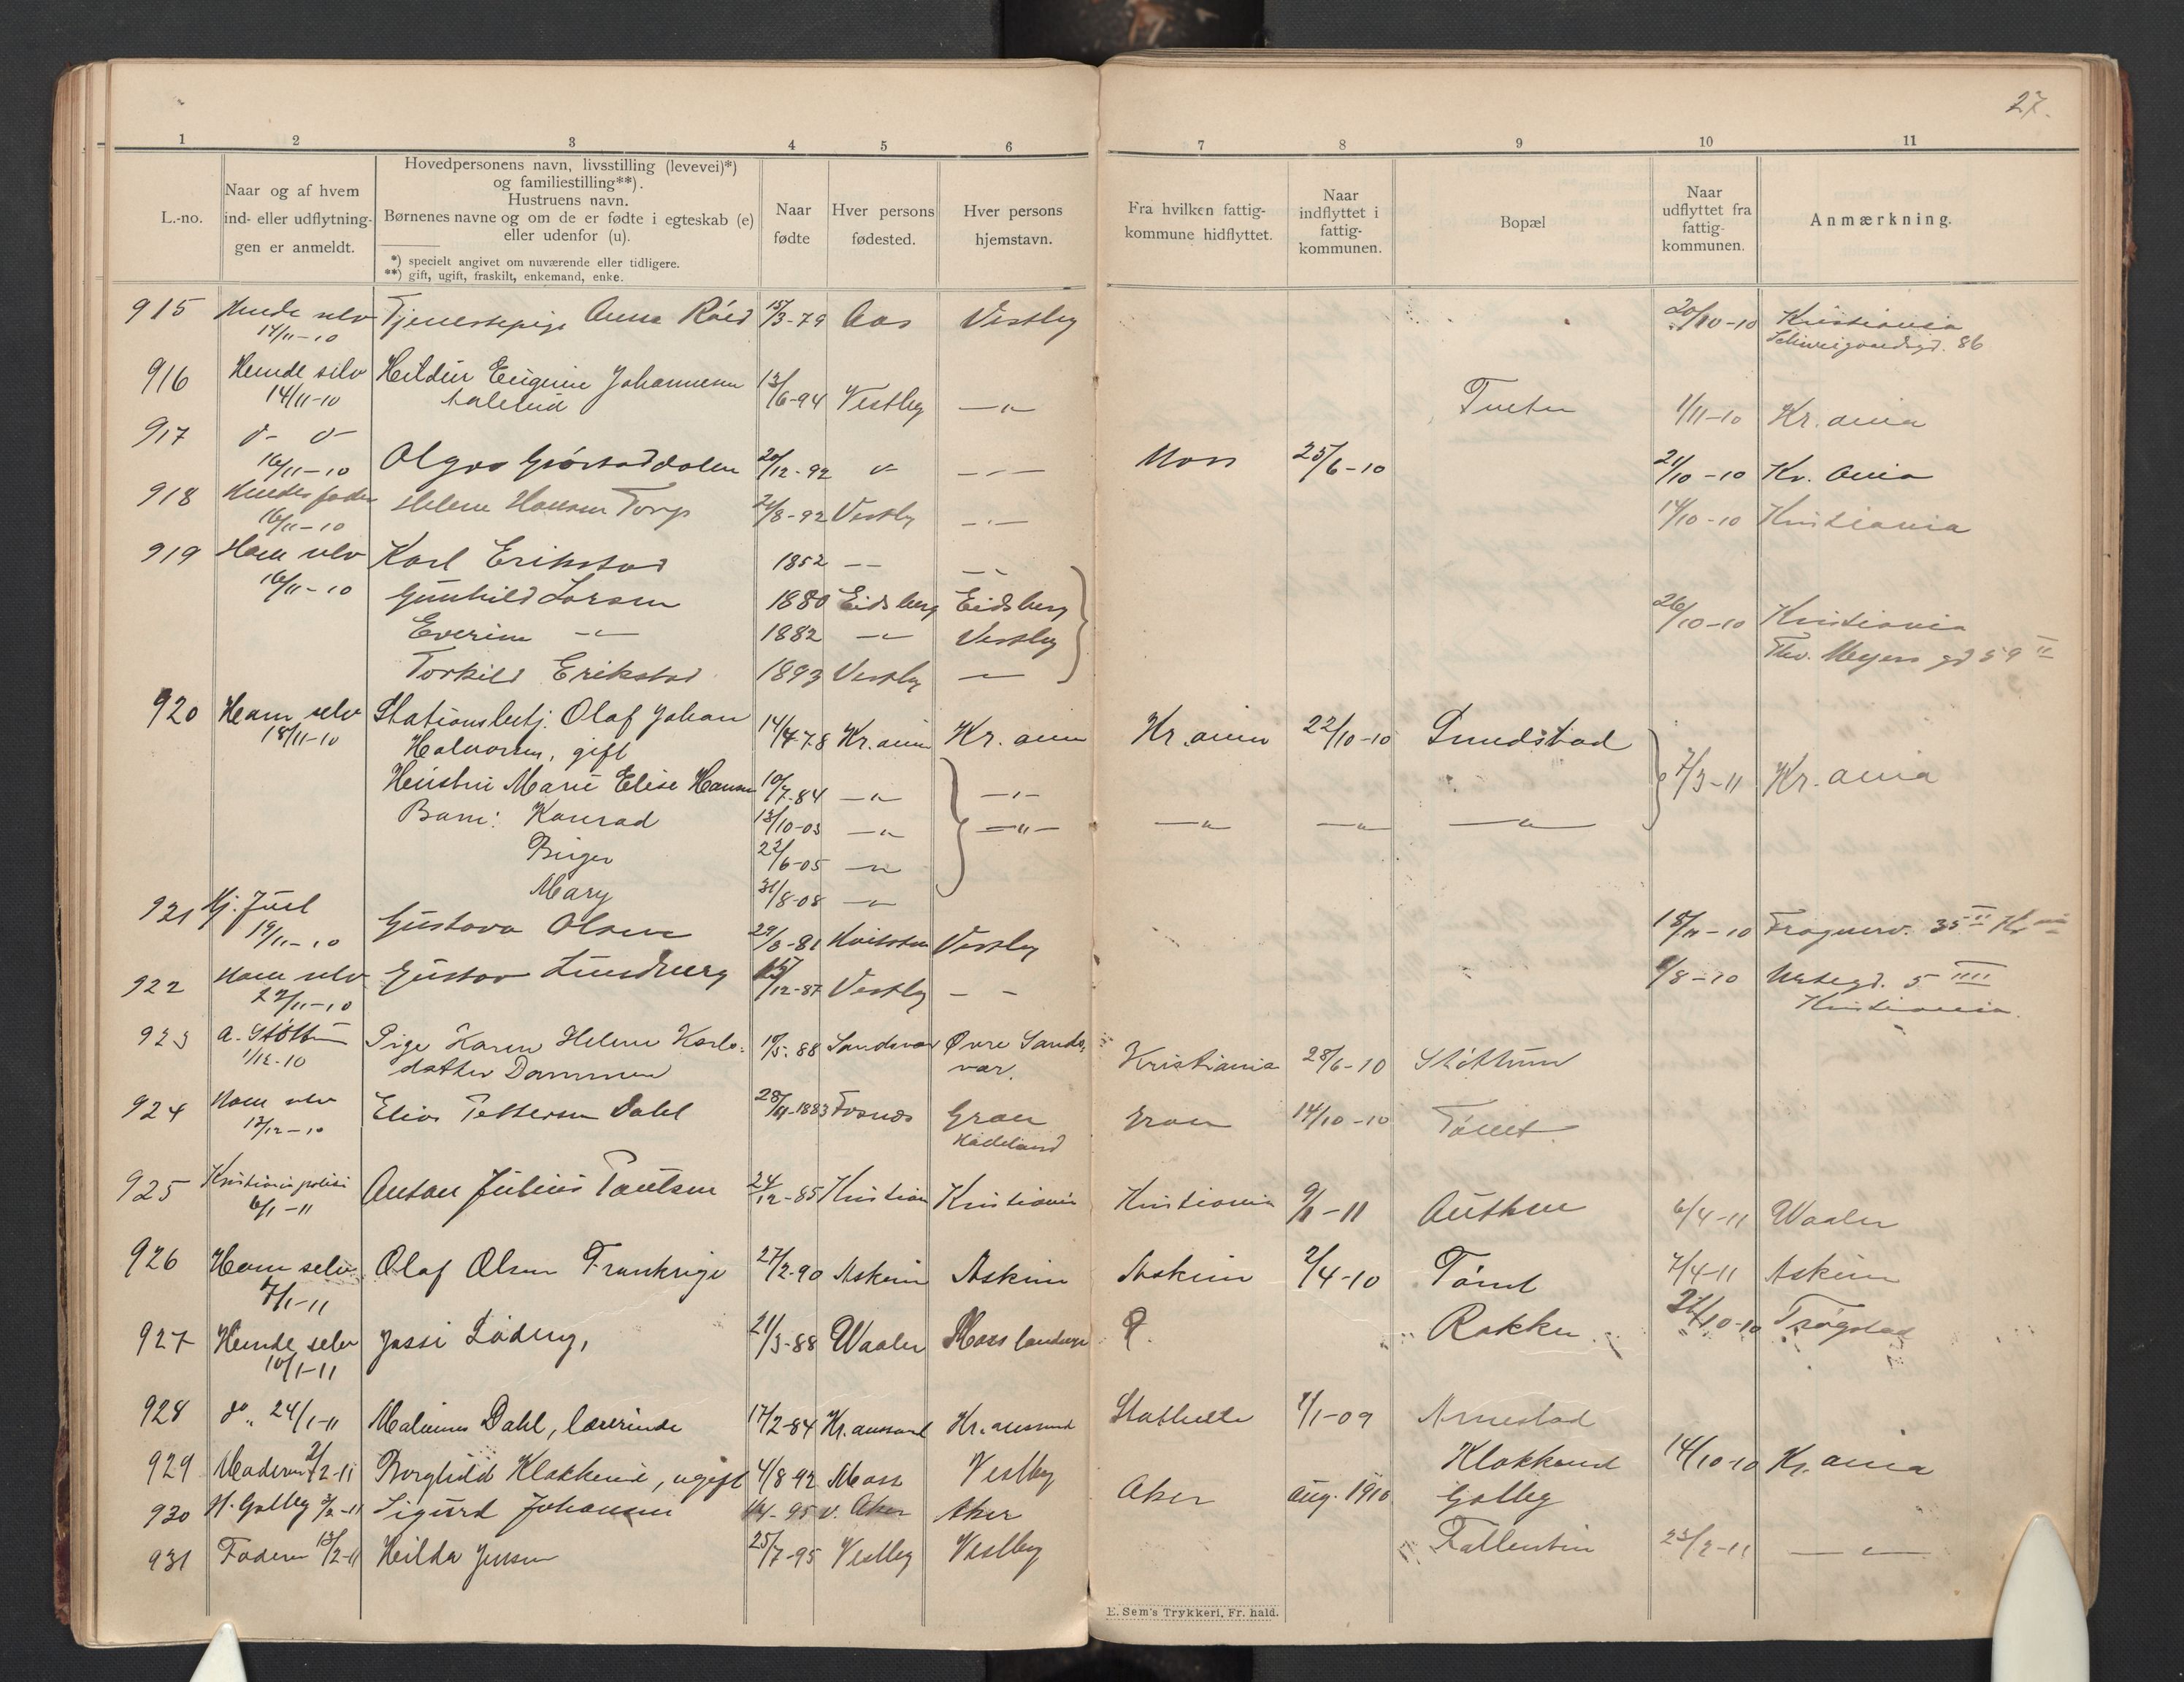 27.
1 2 3 4 5 6 7 8 9 10 11
L.-no.
Naar og af hvem
ind- eller udflytning-
gen er anmeldt.
Hovedpersonens navn, livsstilling (levevei)*)
og familiestilling**).
Hustruens navn.
Børnenes navne og om de er fødte i egteskab (e)
eller udenfor (u).
*) specielt angivet om nuværende eller tidligere.
**) gift, ugift, fraskilt, enkemand, enke.
Naar
fødte
Hver persons
fødested.
Hver persons
hjemstavn.
Fra hvilken fattig-
kommune hidflyttet.
Naar
indflyttet i
fattig-
kommunen.
Bopæl
Naar
udflyttet fra
fattig-
kommunen.
Anmærkning.
915 Hende selv Tjenestepige Anna Röed 15/3-79 Aas Vestby 20/10-10 Kristiania
14/11-10 Schweigaardsgd. 86
916 Hende selv Hildur Eugenie Johannesen 13/6-94 Vestby —"— 1/11-10 Kr.ania
14/11-10
917 d- o-
16/11-10 Olga 20/12-92 — " — Moss 25/6-10 21/10-10 Kr. ania
918 Hendes fader Helene Hansen Torp 8-92 Vestby — " — 14/10-10 Kristiania
16/11-10
919 Ham selv Karl Erikstad 1852 — —
16/11-10 Gunhild Larsen 1880 Eidsberg Eidsberg 26/10-10 Kristiania
Everine —"— 1882 —"— Vestby Thv. Meyers gd 59 II
Torkild Erikstad 1893 Vestby —
920 Ham selv Stationsbetj. Olaf Johan 14/4-78 Kr.ania Kr. ania Kr.ania 22/10-10 7/3-11 Kr.ania
18/11-10 Halvorsen, gift
Hustru Marie Elise Hansen 10/7-84 —"— —"—
Barn: Konrad 13/10-03 —"— —"— —"— —"— —"—
Birger 22/6-05 —"—
Mary 31/8-08 —"—
921 Hj. Juel Gustava Olsen 29/8-81 Hvitsten Vestby 18/11-10 Frognerv. 35 II Kr ania
19/11-10
922 Ham selv Gustav Lundberg 12-87 Vestby — — 8-10 Urtegd. 5 IIII
22/11-10 Kristiania.
923 A. Støttum Pige Karen Helene Karls- 10/5-88 Sandsvær Øvre Sands- Kristiania 28/6-10 Støttum
1/12-10 datter Dammen vær.
924 Ham selv Elias Pettersen Dahl 28/11-1883 Fosnæs Gran Gran 14/10-10
13/12-10 Hadeland
925 Kristiania politi Anton Julius Paulsen 24/12-85 Kristiania Kristiania Kristiania 9/1-11 6/4-11 Waaler
6/1-11
926 Ham selv Olaf Olsen Frankrige 27/2-90 Askim Askim Askim 2/4-10 7/4-11 Askim
7/1-11
927 Hende selv Jassi Löding, 21/3-88 Waaler Moss landsogn ?. Rakku 10-10 Trøgstad
10/1-11
928 do. 24/1-11 Dahl, lærerinde 17/2-84 Kr.anssand Kr.anssund Stathelle 1/1-09 Arnestad
929 Moderen 2-11 Borghild Klokkerud, ugift 4/8-92 Moss Vestby Klokkerud 14/10-10 Kr. ania
930 H. Galby 3/2-11 Sigurd Johansen -95 v. Aker Aker Aker aug. 1910 Galby
931 Faderen 13/2-11 Hilda Jensen 25/7-95 Vestby Vestby Fallentin 23/2-11 —"—
E. Sem's Trykkeri, Fr. hald.